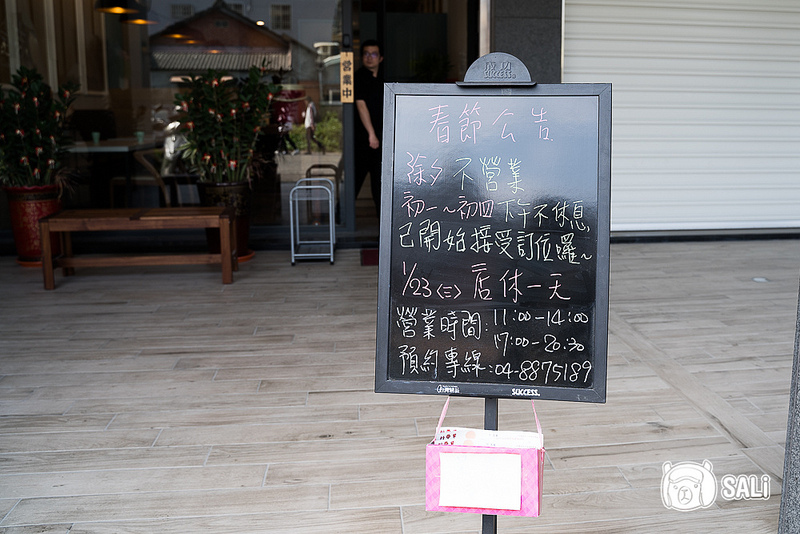 成功
SUCCESS
營業中
春節公告
除夕不營業
初一~初四下午不休息
已開始接受訂位囉~
1/23<三>店休一天
營業時間:11:00-14:00
17:00-20:30
預約專線:04-8875189
SUCCESS.
SALi